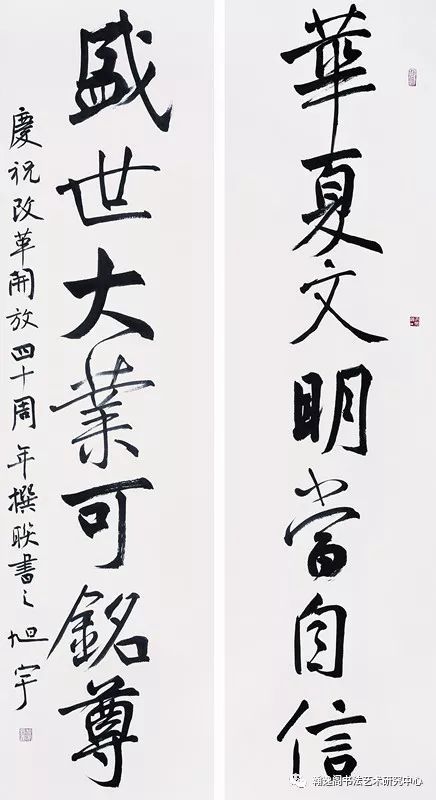 華夏文明當自信
盛世大業可銘尊
慶祝改革開放四十周年撰联書之旭宇
瀚逸阁书法艺术研究中心